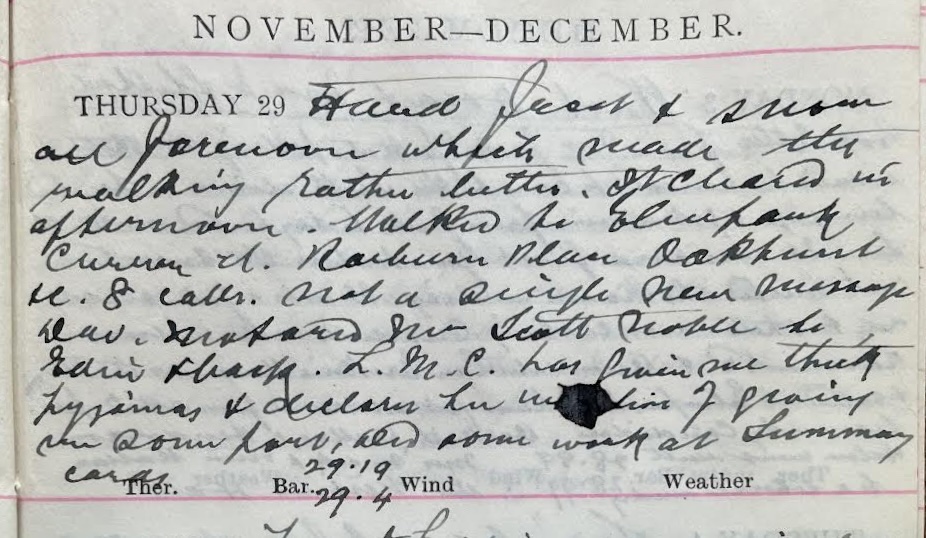 NOVEMBER—DECEMBER.
THURSDAY 29 Hard frost & snow
all forenoon which made the
walking rather better. It cleared in
afternoon. Walked to
Place Oakhurst
&c. 8 calls. Not a single new message
Mr Scott Noble to
Edin & back. L.M.C. has given me thick
pyjamas & declares her of going
in some fort, did some work at Summary
cards
29.19
Ther. Bar. 29.4 Wind Weather